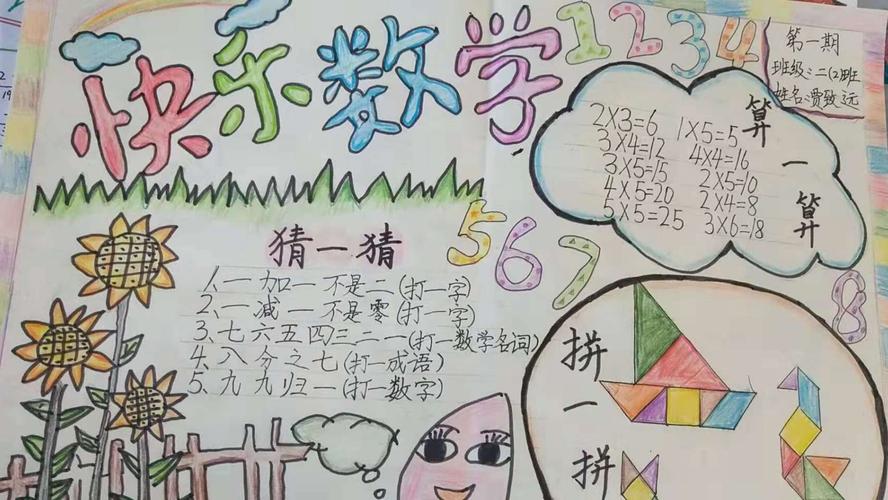 快乐数学
1 2 3 4
第一期
班级:二(2)班
姓名:
算一算
2×3=6 1×5=5
3×4=12 4×4=16
3×5=15 2×5=10
4×5=20 2×4=8
5×5=25 3×6=18
5 6 7
8
猜一猜
1、一加一不是二(打一字)
2、一减一不是零(打一字)
3、七六五四三二一(打一数学名词)
4、八分之七(打一成语)
5、九九归一(打一数字)
拼一拼